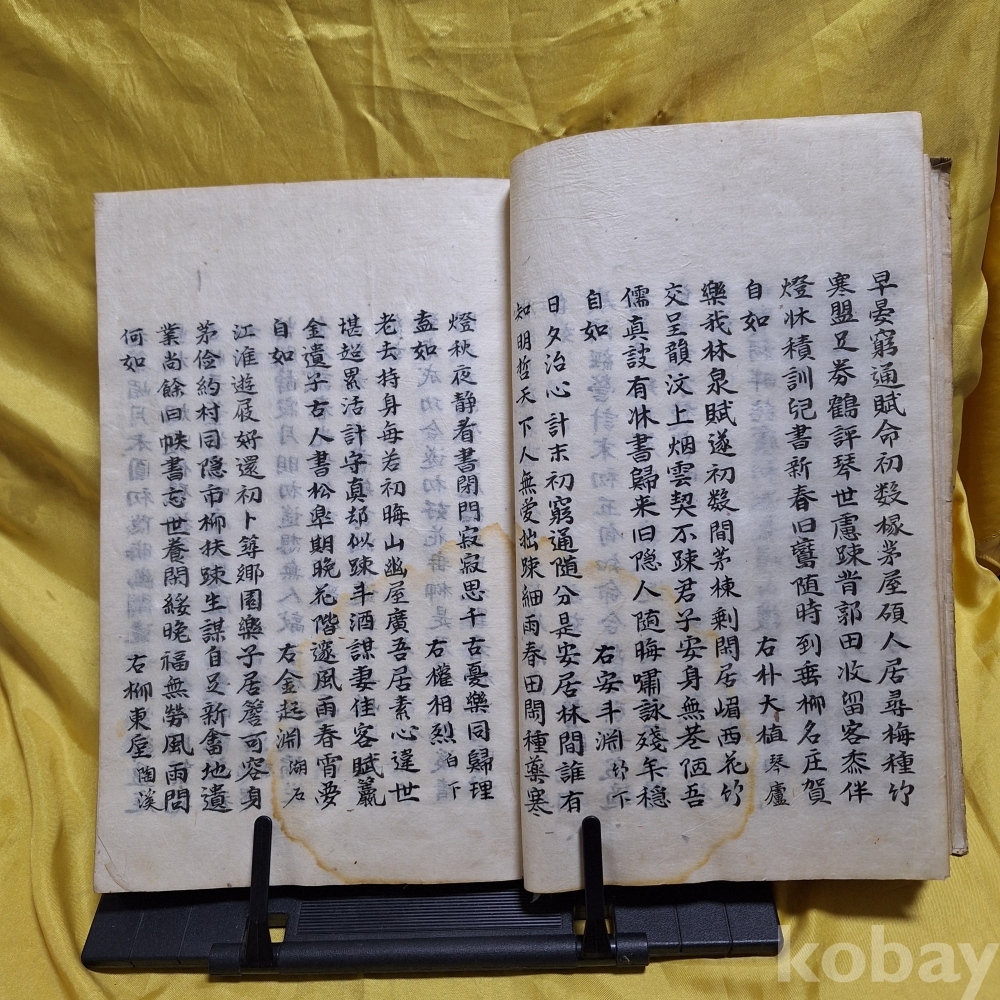 早晏窮通賦命初数椽茅屋碩人居尋梅種竹
寒盟足劵鶴評琴世慮踈昔郭田收留客黍伴
燈牀積訓兒書新春旧鸎随時到垂柳名庄賀
自如 右朴大植琴廬
樂我林泉賦遂初数間茅棟剩閒居嵋西花竹
交呈韻汶上烟雲契不踈君子安身無巷陋吾
儒真訣有牀書歸来旧隐人随晦嘯詠殘年穩
自如 右安斗淵竹下
日夕治心計末初窮通随分是安居林間誰有
知明哲天下人無愛拙踈細雨春田閒種藥寒
燈秋夜静看書閉門寂寂思千古憂樂同歸理
盍如 右權相烈泊下
老去持身每若初晦山幽屋廣吾居素心違世
堪超累活計守真却似踈斗酒謀妻佳客賦籯
金遺子古人書松臯期晚花階邃風雨春宵夢
自如 右金起淵湖石
江淮遊屐好還初卜築鄉園樂子居簷可容身
茅俭約村同隐市柳扶踈生謀自足新畬地遺
業尚餘旧帙書忘世養閑綏晚福無勞風雨問
何如 右柳東垕陶溪
kobay